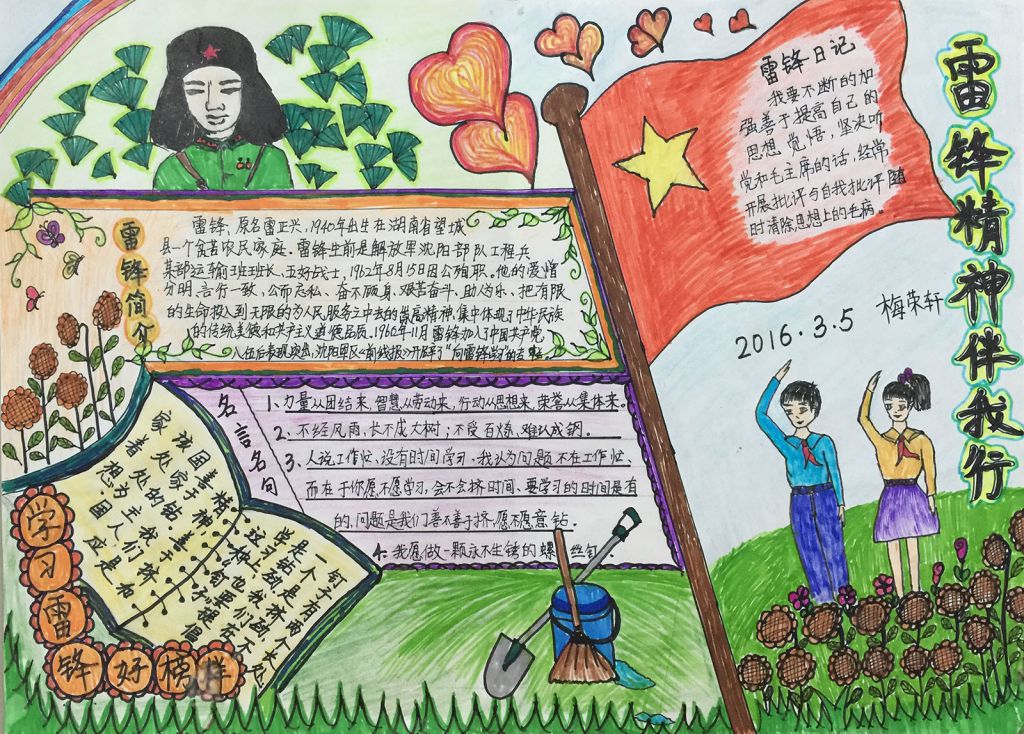 雷锋精神伴我行
雷锋日记
我要不断的加
强善于提高自己的
思想觉悟,坚决听
党和毛主席的话,经常
开展批评与自我批评,随
时清除思想上的毛病。
2016.3.5 梅荣轩
雷锋简介
雷锋,原名雷正兴,1940年出生在湖南省望城
县一个贫苦农民家庭。雷锋生前是解放军沈阳部队工程兵
某部运输班班长、五好战士,1962年8月15日因公殉职。他的爱憎
分明、言行一致、公而忘私、奋不顾身、艰苦奋斗、助人为乐、把有限
的生命投入到无限的为人民服务之中去的崇高精神,集中体现了中华民族
的传统美德和共产主义道德品质。1960年11月雷锋加入了中国共产党
入伍后表现突出,沈阳军区《前线报》开辟了“向雷锋学习”的专栏。
名言名句
1、力量从团结来,智慧从劳动来,行动从思想来,荣誉从集体来。
2、不经风雨,长不成大树;不受百炼,难以成钢。
3、人说工作忙、没有时间学习、我认为问题不在工作忙
而在于你愿不愿学习,会不会挤时间、要学习的时间是有
的、问题是我们善不善于挤,愿不愿意钻。
4、我愿做一颗永不生锈的螺丝钉
钉子有两
个长处
是挤
精神
善于钻
国家
学习雷
锋好榜样